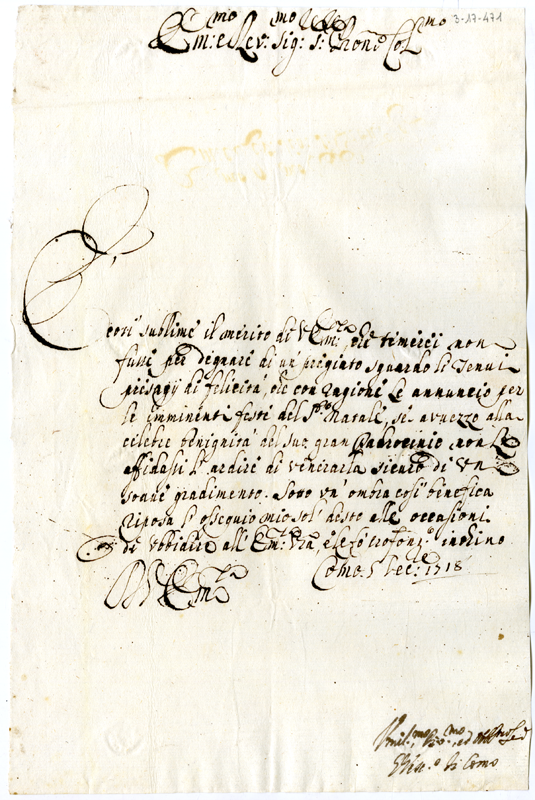 3-17-471
Em:mo e Rev:mo Sig: S: Pron Col:mo
È
cosi sublime il merito di V Em:za che temerei non
fusse per degnare di un' preggiato sguardo li Tenui
presagij di felicità, che con ragione Le annuncio per
le imminenti feste del S:mo Natale, se avvezzo alla
celebre benignità del suo gran Patrocinio non
affidassi l' ardire di venerarla sicuro di un
soave gradimento. Sotto un' ombra così benefica
riposa l' ossequio mio sol' desto alle occasioni
di ubbidire all' Em: Vra, e le fò profond: inchino
Como 5 Dec: 1718
D V Em:za
Humil:mo Dev:mo ed
di Como